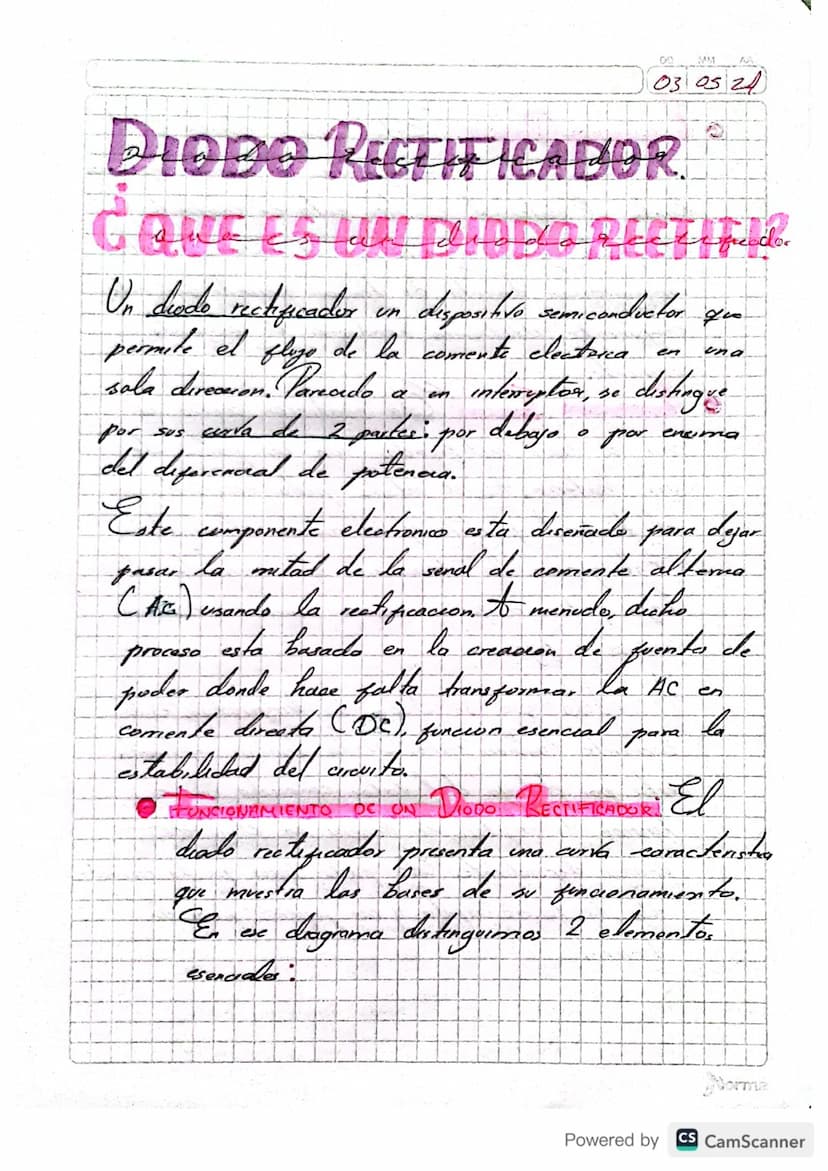 DD MM AA
03 05 24
DIODO RECTIFICADOR.
¿QUE ES UN DIODO RECTIFI?
Un diodo rectificador un dispositivo semiconductor que
permite el flujo de la corriente electrica en una
sola direccion. Parecido a un interruptor, se distingue
por sus curva de 2 partes: por debajo o por encima
del diferencial de potencia.
Este componente electronico esta diseñado para dejar
pasar la mitad de la senal de corriente alterna
(AC) usando la rectificacion. A menudo, dicho
proceso esta basado en la creacion de fuente de
poder donde hace falta transformar la AC en
corriente directa (DC), funcion esencial para la
estabilidad del circuito.
• FUNCIONAMIENTO DE UN DIODO RECTIFICADOR: El
diodo rectificador presenta una curva caracteristica
que muestra las bases de su funcionamiento.
En ese diagrama distinguimos 2 elementos
esenciales:
Norma
Powered by CS CamScanner